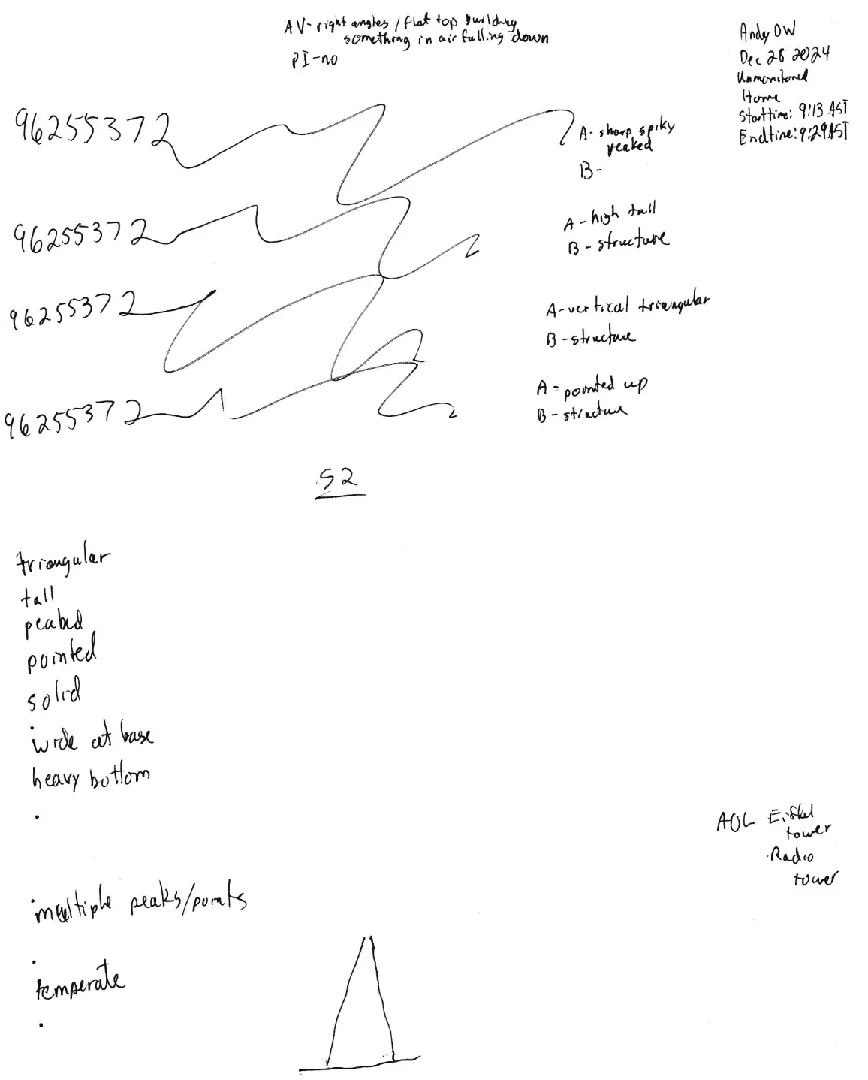 AV-right angles / flat top building
something in air falling down
PI-no
Andy OW
Dec 28 2024
Unmonitored
Home
Starttime: 9:13 AST
Endtime: 9:29 AST
96255372
A- sharp spiky
peaked
B-
96255372
A-high tall
B-structure
96255372
A-vertical triangular
B-structure
96255372
A-pointed up
B-structure
S2
triangular
tall
peaked
pointed
solid
wide at base
heavy bottom
AOL Eiffel
tower
Radio
tower
multiple peaks/points
temperate